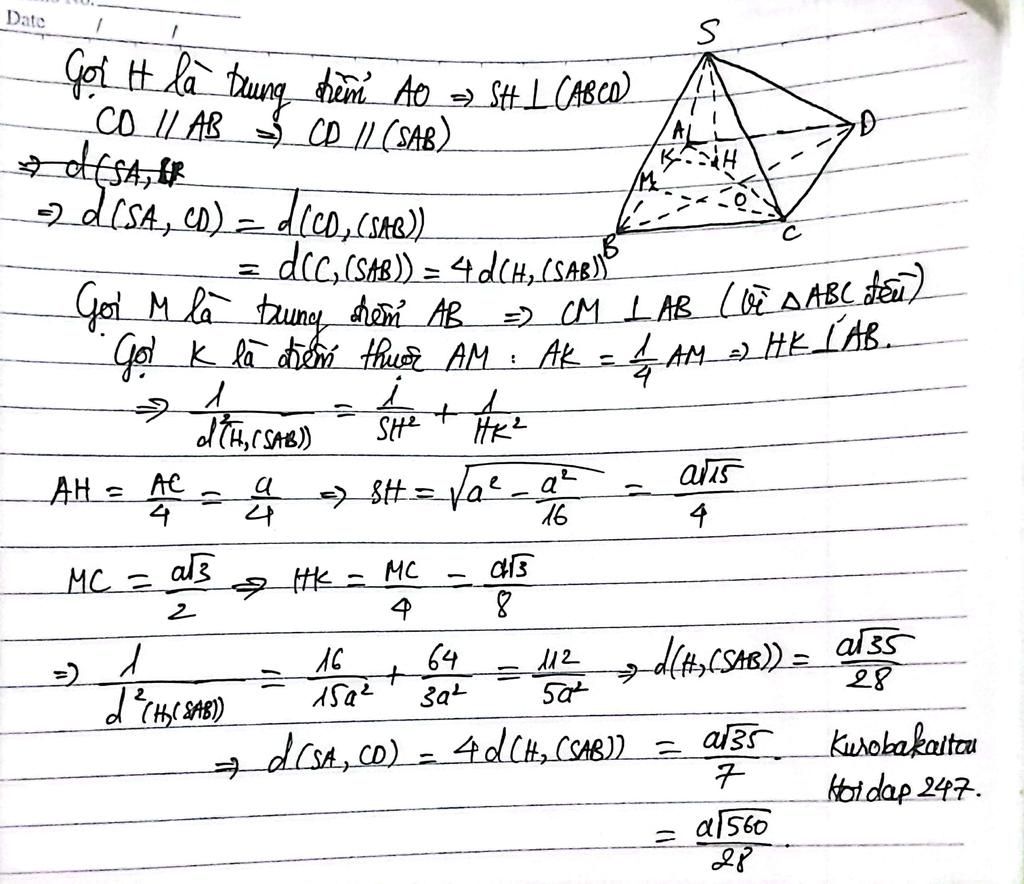 Date / /
Gọi H là trung điểm AO ⇒ SH ⊥ (ABCD)
CD // AB ⇒ CD // (SAB)
⇒ d(SA, CD) = d(CD, (SAB))
= d(C, (SAB)) = 4d(H, (SAB))
Gọi M là trung điểm AB ⇒ CM ⊥ AB (vì △ABC đều)
Gọi K là điểm thuộc AM : AK = 1/4 AM ⇒ HK ⊥ AB.
⇒ 1/d²(H, (SAB)) = 1/SH² + 1/HK²
AH = AC/4 = a/4 ⇒ SH = √(a² - a²/16) = a√15/4
MC = a√3/2 ⇒ HK = MC/4 = a√3/8
⇒ 1/d²(H,(SAB)) = 16/15a² + 64/3a² = 112/5a² ⇒ d(H,(SAB)) = a√35/28
⇒ d(SA, CD) = 4d(H, (SAB)) = a√35/7.
= a√560/28.
Kurobakaitou
Hoidap 247.
S
A
D
K
H
M
O
B
C